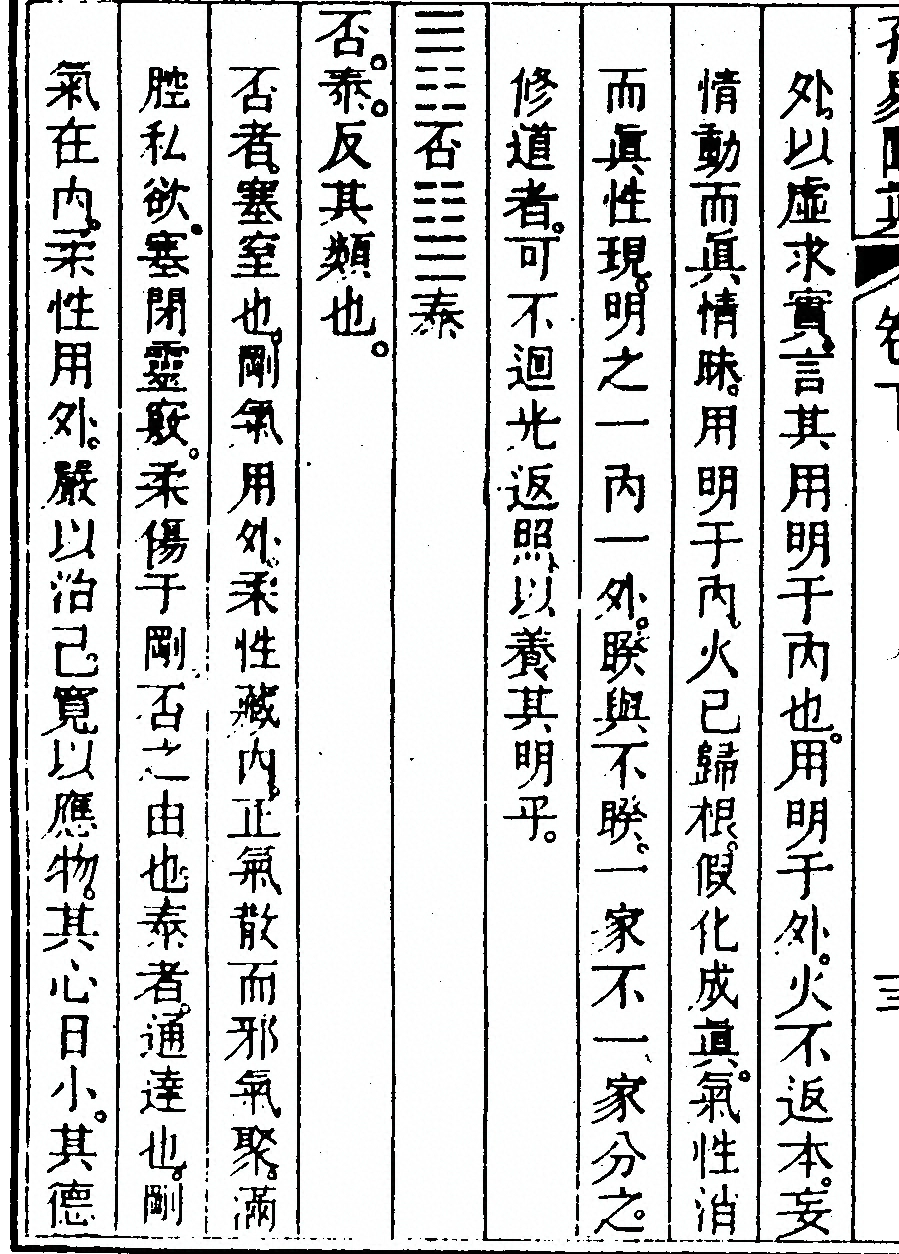 孔易闡眞 卷下 三
處。以虛求實。言其用明于內也。用明于外。火不返本。妄
情動而眞情昧。用明于內。火已歸根。假化成眞。氣性消
而眞性現。明之一內一外。睽與不睽。一家不一家分之。
修道者。可不迴光返照。以養其明乎。
䷋否䷊泰
否。泰。反其類也。
否者。塞窒也。剛氣用外。柔性藏內。正氣散而邪氣聚。滿
腔私欲。塞閉靈竅。柔傷于剛。否之由也。泰者。通達也。剛
氣在內。柔性用外。嚴以治己。寬以應物。其心日小。其德